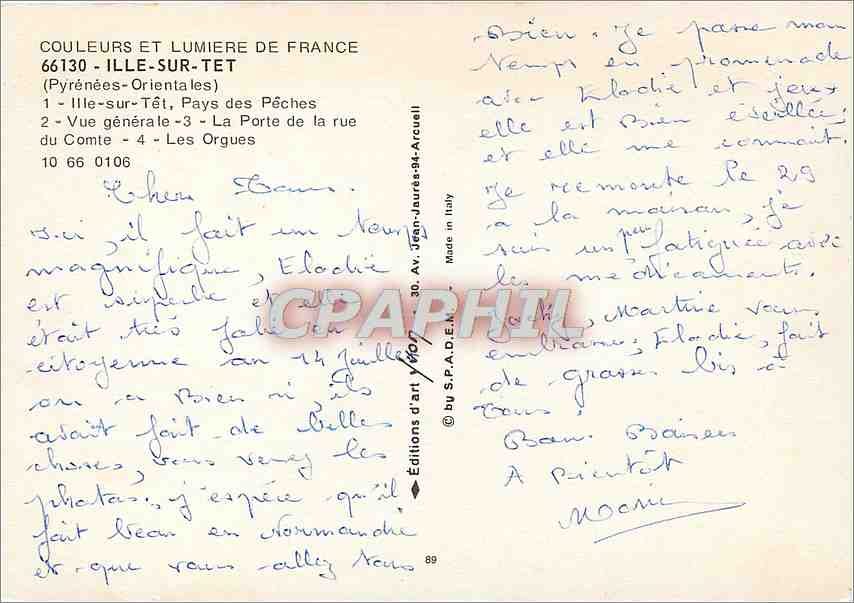 COULEURS ET LUMIERE DE FRANCE
66130 - ILLE-SUR-TET
(Pyrénées-Orientales)
1 - Ille-sur-Têt, Pays des Pêches
2 - Vue générale -3 - La Porte de la rue
du Comte - 4 - Les Orgues
10 66 0106
Chers Tous.
Ici, il fait un temps
magnifique, Elodie
est superbe et elle
était très jolie en
citoyenne au 14 juillet
on a Bien ri, ils
avait fait de belles
choses, vous verez les
photos, j'espère qu'il
fait beau en Normandie
et que vous allez tous
Bien. Je passe mon
temps en promenade
avec Elodie et jeux
elle est Bien éveillée,
et elle me connait.
Je remonte le 29
a la maison, je
suis un peu fatiguée avec
les médicaments.
Martine vous
embrasse, Elodie, fait
de grosses bis à
Tous.
Bons Baisers
A Bientôt
CPAPHIL
Editions d'art yvon - 30. Av. Jean-Jaurès-94-Arcueil
© by S.P.A.D.E.N. - Made in Italy
89